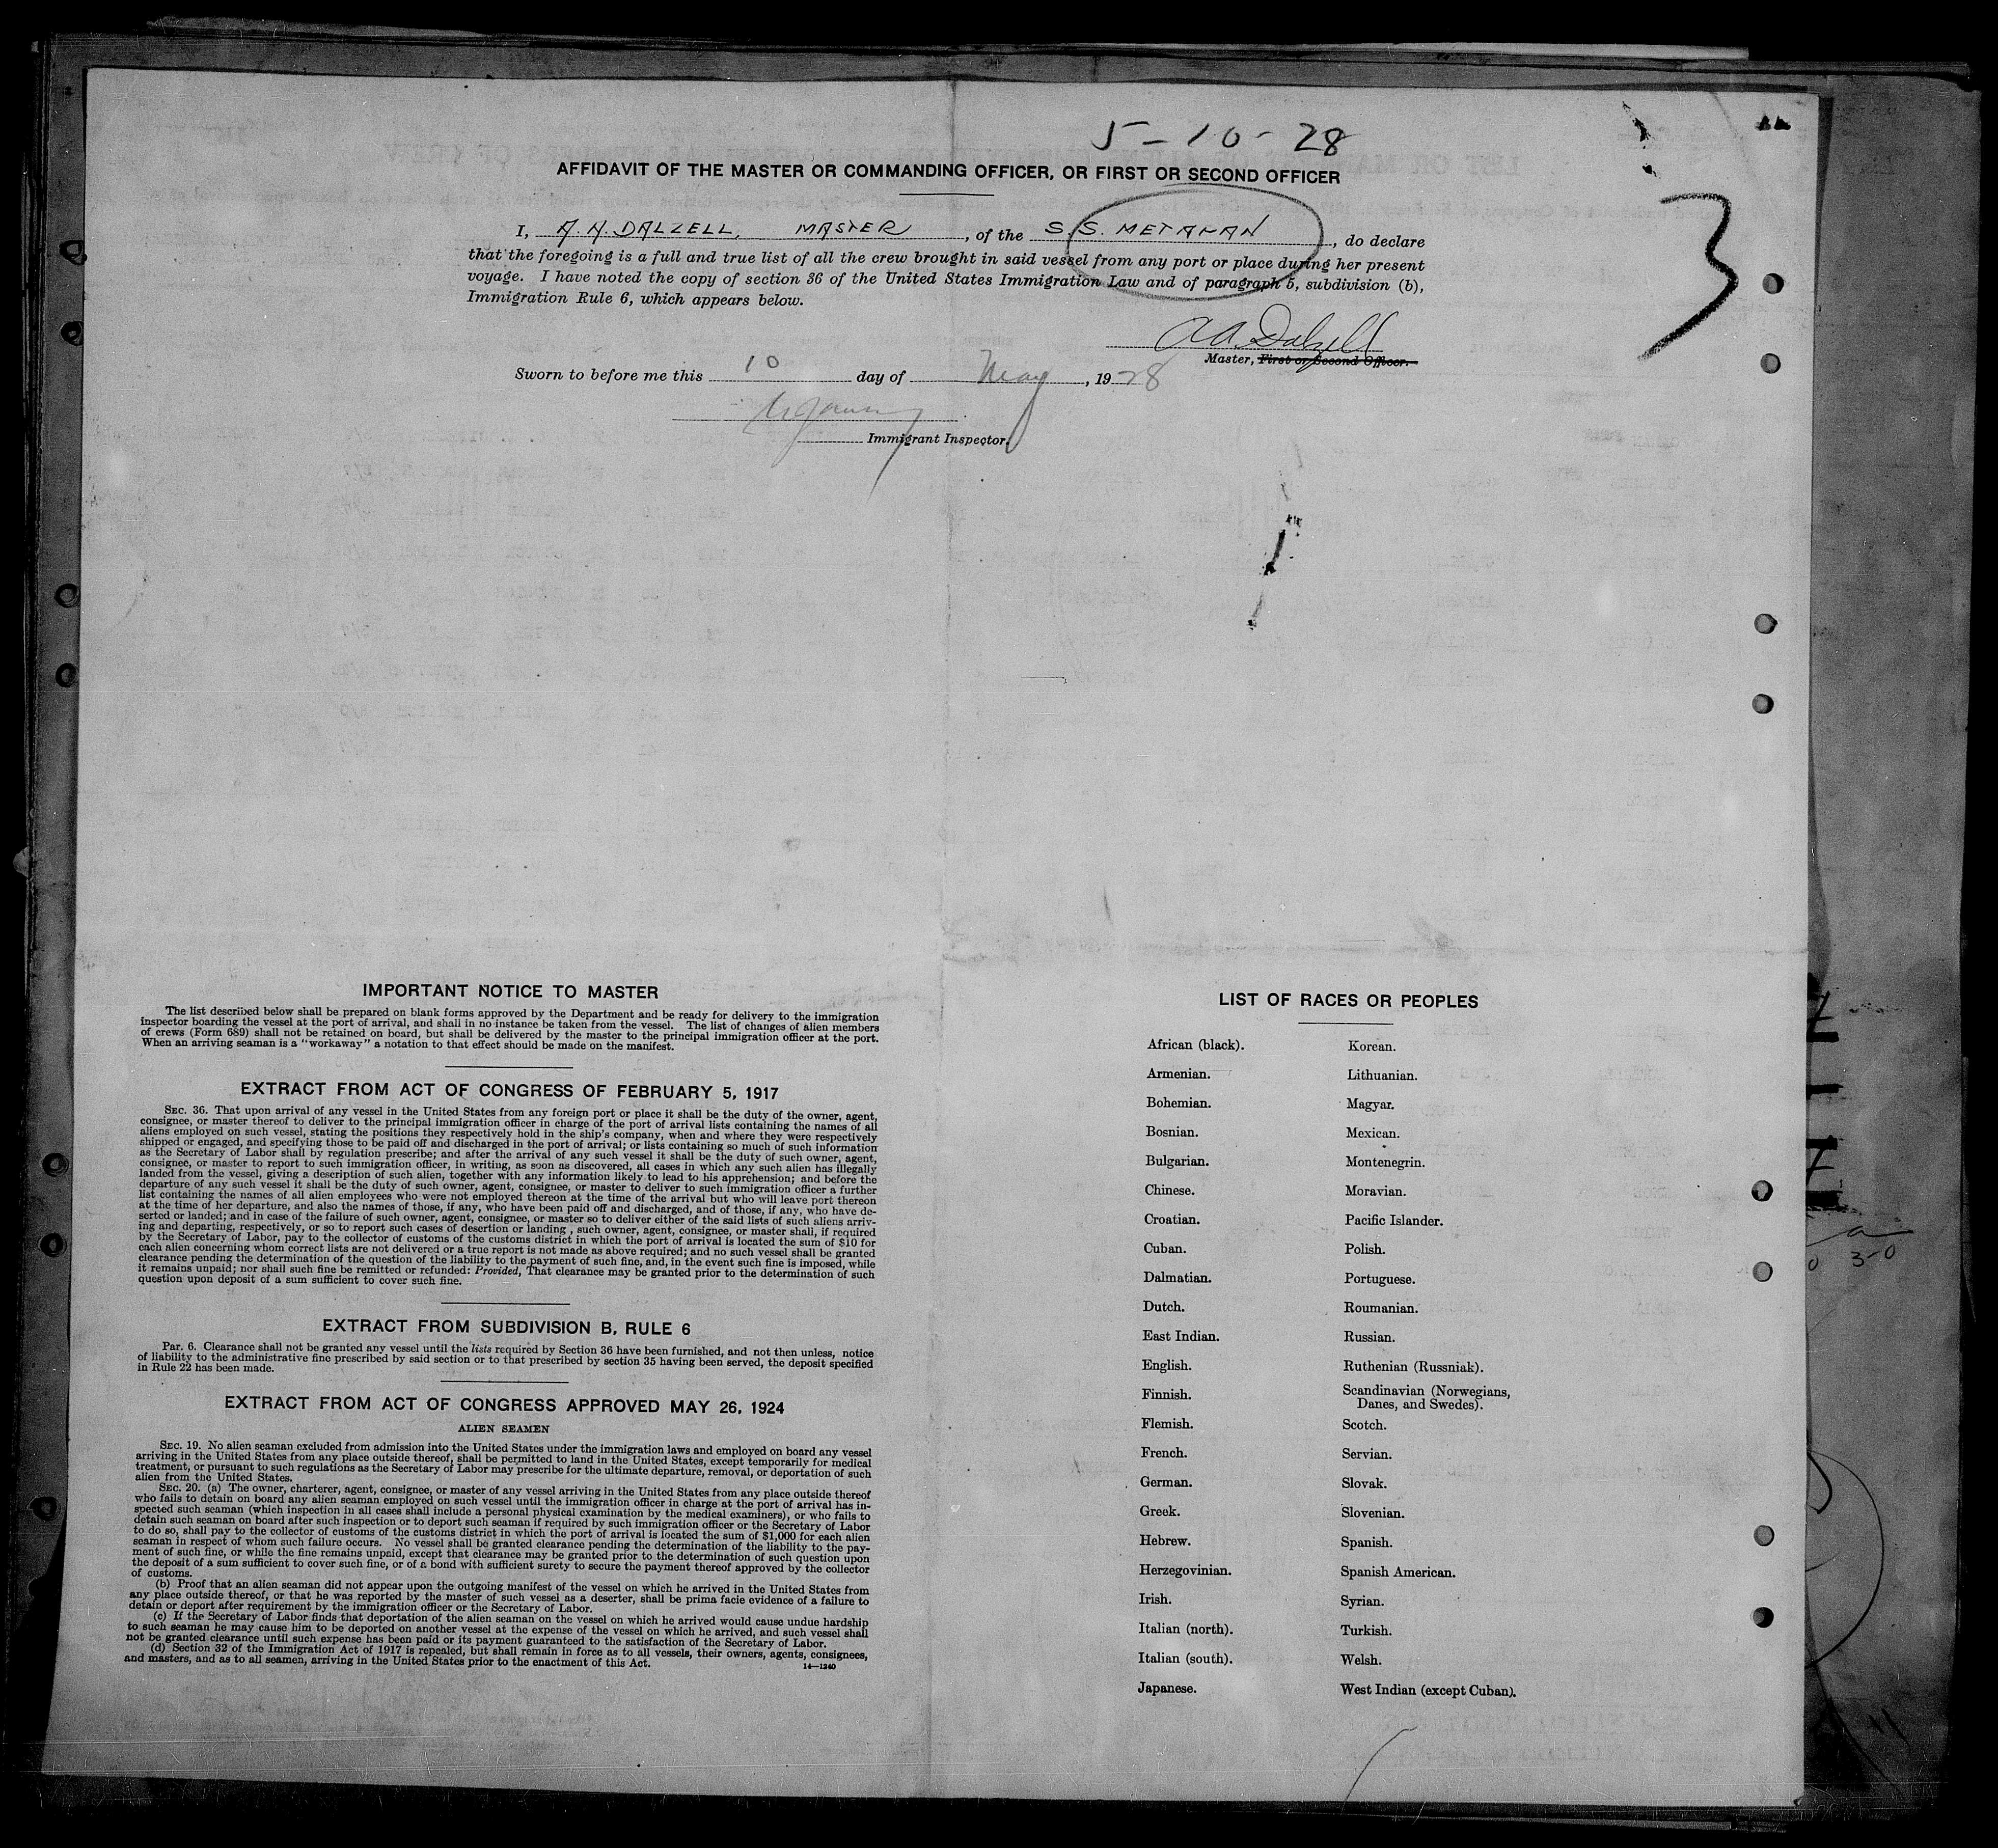 5-10-28
AFFIDAVIT OF THE MASTER OR COMMANDING OFFICER, OR FIRST OR SECOND OFFICER
3
I, A. A. DALZELL, MASTER, of the S.S. METAPAN, do declare
that the foregoing is a full and true list of all the crew brought in said vessel from any port or place during her present
voyage. I have noted the copy of section 36 of the United States Immigration Law and of paragraph 5, subdivision (b),
Immigration Rule 6, which appears below.
A.A. Dalzell
Master, First or Second Officer.
Sworn to before me this 10 day of May, 1928
Immigrant Inspector.
IMPORTANT NOTICE TO MASTER
The list described below shall be prepared on blank forms approved by the Department and be ready for delivery to the immigration
inspector boarding the vessel at the port of arrival, and shall in no instance be taken from the vessel. The list of changes of alien members
of crews (Form 689) shall not be retained on board, but shall be delivered by the master to the principal immigration officer at the port.
When an arriving seaman is a "workaway" a notation to that effect should be made on the manifest.
EXTRACT FROM ACT OF CONGRESS OF FEBRUARY 5, 1917
SEC. 36. That upon arrival of any vessel in the United States from any foreign port or place it shall be the duty of the owner, agent,
consignee, or master thereof to deliver to the principal immigration officer in charge of the port of arrival lists containing the names of all
aliens employed on such vessel, stating the positions they respectively hold in the ship's company, when and where they were respectively
shipped or engaged, and specifying those to be paid off and discharged in the port of arrival; or lists containing so much of such information
as the Secretary of Labor shall by regulation prescribe; and after the arrival of any such vessel it shall be the duty of such owner, agent,
consignee, or master to report to such immigration officer, in writing, as soon as discovered, all cases in which any such alien has illegally
landed from the vessel, giving a description of such alien, together with any information likely to lead to his apprehension; and before the
departure of any such vessel it shall be the duty of such owner, agent, consignee, or master to deliver to such immigration officer a further
list containing the names of all alien employees who were not employed thereon at the time of the arrival but who will leave port thereon
at the time of her departure, and also the names of those, if any, who have been paid off and discharged, and of those, if any, who have de-
serted or landed; and in case of the failure of such owner, agent, consignee, or master so to deliver either of the said lists of such aliens arriv-
ing and departing, respectively, or so to report such cases of desertion or landing, such owner, agent, consignee, or master shall, if required
by the Secretary of Labor, pay to the collector of customs of the customs district in which the port of arrival is located the sum of $10 for
each alien concerning whom correct lists are not delivered or a true report is not made as above required; and no such vessel shall be granted
clearance pending the determination of the question of the liability to the payment of such fine, and, in the event such fine is imposed, while
it remains unpaid; nor shall such fine be remitted or refunded: Provided, That clearance may be granted prior to the determination of such
question upon deposit of a sum sufficient to cover such fine.
EXTRACT FROM SUBDIVISION B, RULE 6
Par. 6. Clearance shall not be granted any vessel until the lists required by Section 36 have been furnished, and not then unless, notice
of liability to the administrative fine prescribed by said section or to that prescribed by section 35 having been served, the deposit specified
in Rule 22 has been made.
EXTRACT FROM ACT OF CONGRESS APPROVED MAY 26, 1924
ALIEN SEAMEN
SEC. 19. No alien seaman excluded from admission into the United States under the immigration laws and employed on board any vessel
arriving in the United States from any place outside thereof, shall be permitted to land in the United States, except temporarily for medical
treatment, or pursuant to such regulations as the Secretary of Labor may prescribe for the ultimate departure, removal, or deportation of such
alien from the United States.
SEC. 20. (a) The owner, charterer, agent, consignee, or master of any vessel arriving in the United States from any place outside thereof
who fails to detain on board any alien seaman employed on such vessel until the immigration officer in charge at the port of arrival has in-
spected such seaman (which inspection in all cases shall include a personal physical examination by the medical examiners), or who fails to
detain such seaman on board after such inspection or to deport such seaman if required by such immigration officer or the Secretary of Labor
to do so, shall pay to the collector of customs of the customs district in which the port of arrival is located the sum of $1,000 for each alien
seaman in respect of whom such failure occurs. No vessel shall be granted clearance pending the determination of the liability to the pay-
ment of such fine, or while the fine remains unpaid, except that clearance may be granted prior to the determination of such question upon
the deposit of a sum sufficient to cover such fine, or of a bond with sufficient surety to secure the payment thereof approved by the collector
of customs.
(b) Proof that an alien seaman did not appear upon the outgoing manifest of the vessel on which he arrived in the United States from
any place outside thereof, or that he was reported by the master of such vessel as a deserter, shall be prima facie evidence of a failure to
detain or deport after requirement by the immigration officer or the Secretary of Labor.
(c) If the Secretary of Labor finds that deportation of the alien seaman on the vessel on which he arrived would cause undue hardship
to such seaman he may cause him to be deported on another vessel at the expense of the vessel on which he arrived, and such vessel shall
not be granted clearance until such expense has been paid or its payment guaranteed to the satisfaction of the Secretary of Labor.
(d) Section 32 of the Immigration Act of 1917 is repealed, but shall remain in force as to all vessels, their owners, agents, consignees,
and masters, and as to all seamen, arriving in the United States prior to the enactment of this Act.
14—1240
LIST OF RACES OR PEOPLES
African (black). Korean.
Armenian. Lithuanian.
Bohemian. Magyar.
Bosnian. Mexican.
Bulgarian. Montenegrin.
Chinese. Moravian.
Croatian. Pacific Islander.
Cuban. Polish.
Dalmatian. Portuguese.
Dutch. Roumanian.
East Indian. Russian.
English. Ruthenian (Russniak).
Finnish. Scandinavian (Norwegians,
Danes, and Swedes).
Flemish. Scotch.
French. Servian.
German. Slovak.
Greek. Slovenian.
Hebrew. Spanish.
Herzegovinian. Spanish American.
Irish. Syrian.
Italian (north). Turkish.
Italian (south). Welsh.
Japanese. West Indian (except Cuban).